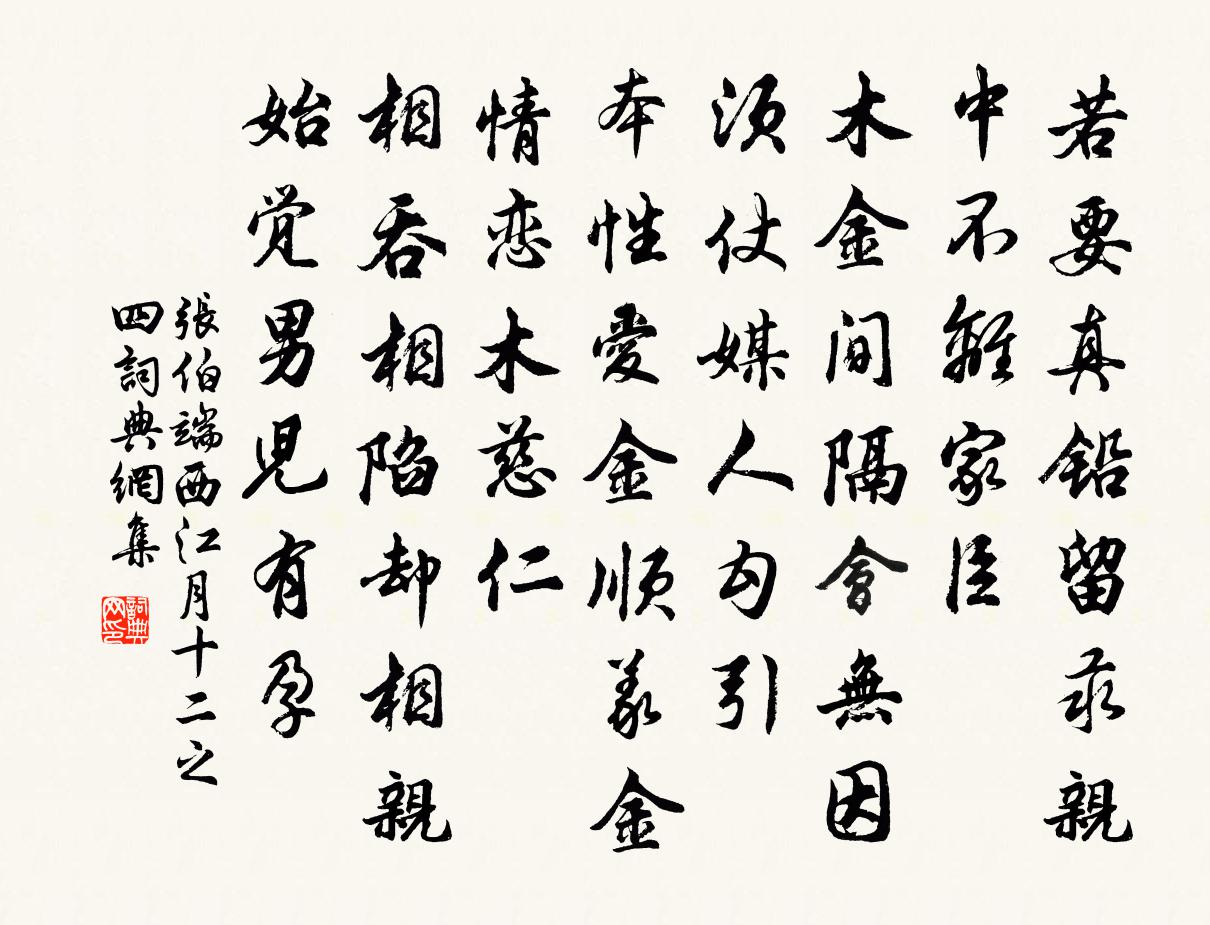 若要真鉛留汞親
中不離家臣
木金間隔會無因
須仗媒人勾引
本性愛金順義金
情恋木慈仁
相吞相陷却相親
始覚男児有孕
張伯端西江月十二之
四詞典網集
詞典
网印